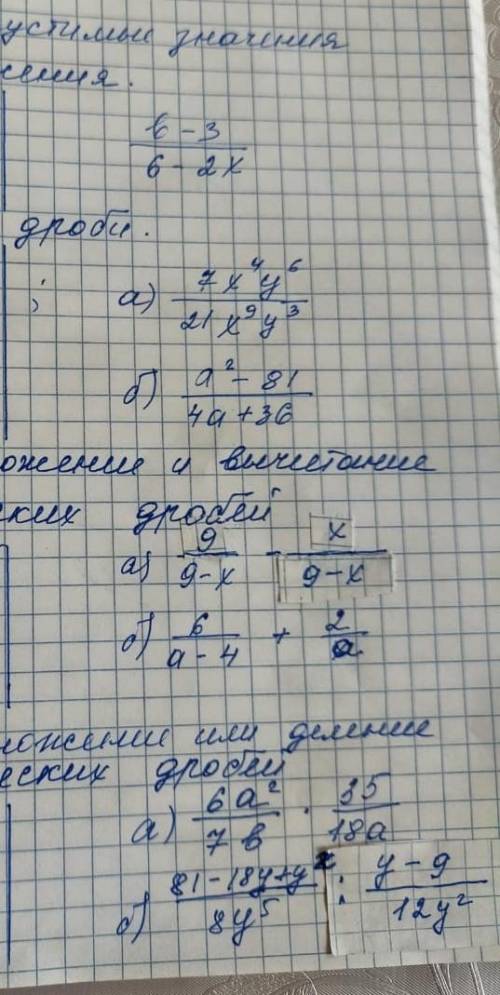 устимые значения
жения.
b - 3 / 6 - 2x
дроби.
; а) 7x⁴y⁶ / 21x⁹y³
б) a² - 81 / 4a + 36
ожение и вычитание
ких дробей
а) 9 / 9 - x - x / 9 - x
б) 6 / a - 4 + 2 / a
ножение или деление
еских дробей
а) 6a² / 7b · 35 / 18a
б) 81 - 18y + y² / 8y⁵ : y - 9 / 12y²